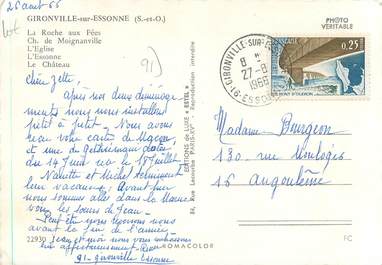 26 août 66
GIRONVILLE-sur-ESSONNE (S.-et-O.)
La Roche aux Fées
Ch. de Moignanville
L'Eglise
L'Essonne
Le Château
91)
PHOTO
VERITABLE
GIRONVILLE-SUR-
8 -
27-8
1966
(91) ESSONNE
0,25
PONT D'OLERON
Chère Zette,
après nos deux déménage-
ments nous nous installons
petit à petit. Nous avons
eu votre carte de Macon
et une du Gethsémani datée
du 14 Juin le 18 Juillet
Nanette et Michel terminent
leur vacances, Avant-hier
nous sommes allés dans la Marne
voir les sœurs de Jean.
Peut-être nous reverrons nous
avant la fin de l'année
Jean et moi nous vous embrassons
affectueusement
91 - Gironville Essonne
EDITIONS de LUXE « ESTEL »
Reproduction interdite
84, Rue Lecourbe PARIS-XV°
Madame Bourgeon
130, rue
16 angoulême
22930
ROMACOLOR
FC